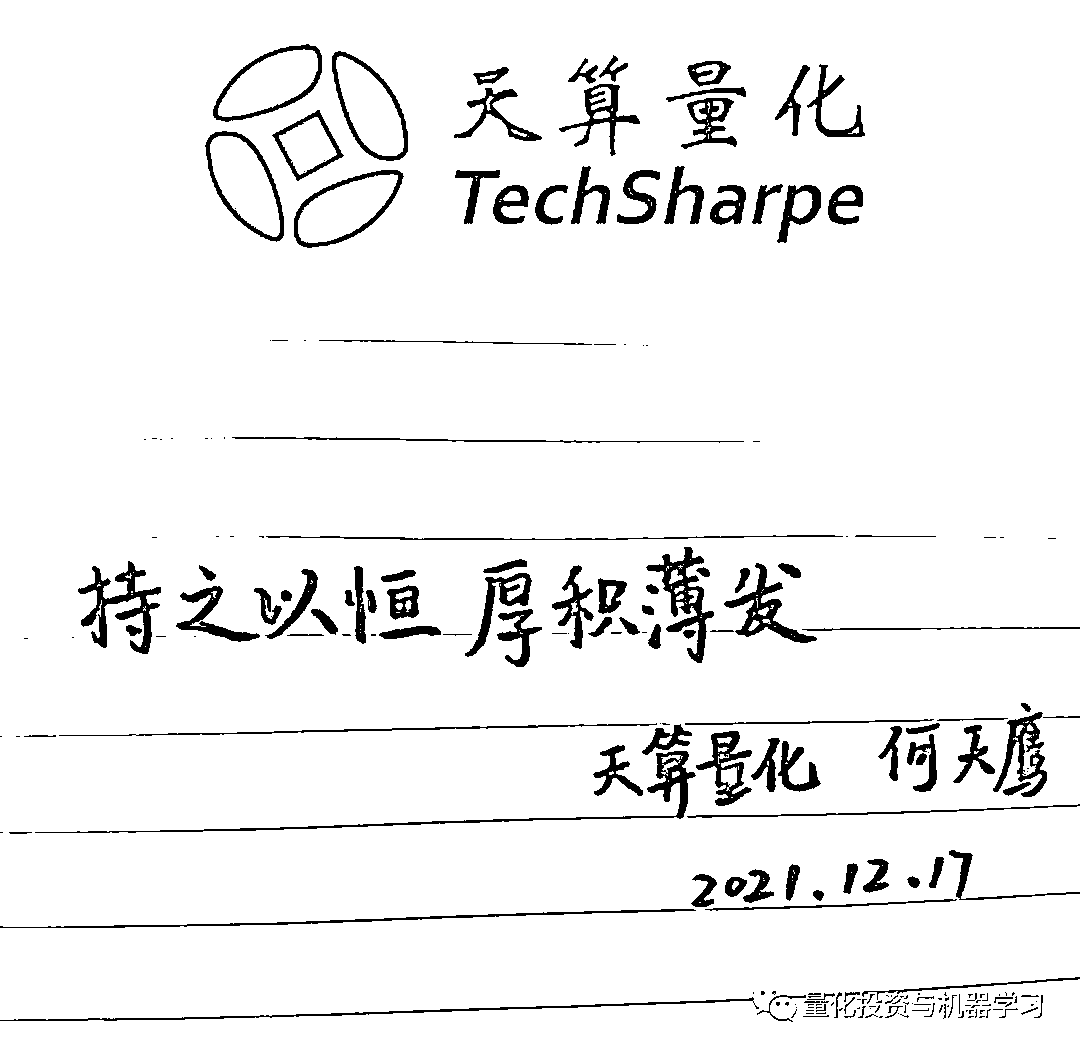 天算量化
TechSharpe
持之以恒 厚积薄发
天算量化 何天鹰
2021.12.17
量化投资与机器学习